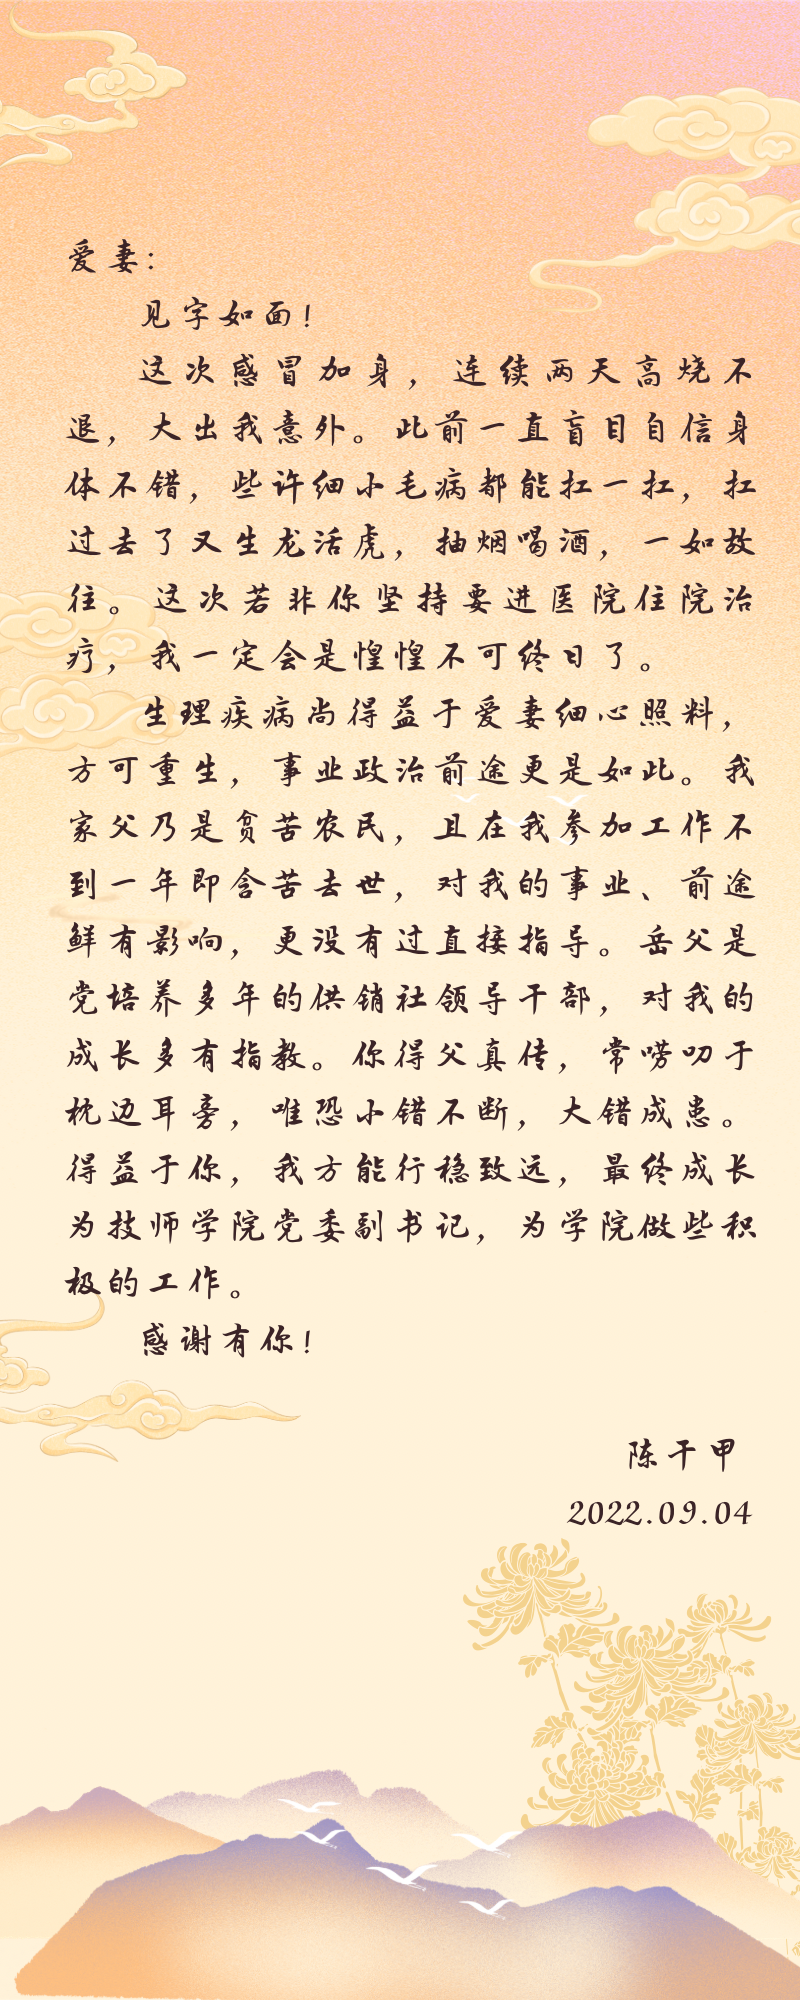 爱妻：
见字如面！
这次感冒加身，连续两天高烧不
退，大出我意外。此前一直盲目自信身
体不错，些许细小毛病都能扛一扛，扛
过去了又生龙活虎，抽烟喝酒，一如故
往。这次若非你坚持要进医院住院治
疗，我一定会是惶惶不可终日了。
生理疾病尚得益于爱妻细心照料，
方可重生，事业政治前途更是如此。我
家父乃是贫苦农民，且在我参加工作不
到一年即含苦去世，对我的事业、前途
鲜有影响，更没有过直接指导。岳父是
党培养多年的供销社领导干部，对我的
成长多有指教。你得父真传，常唠叨于
枕边耳旁，唯恐小错不断，大错成患。
得益于你，我方能行稳致远，最终成长
为技师学院党委副书记，为学院做些积
极的工作。
感谢有你！
陈干甲
2022.09.04